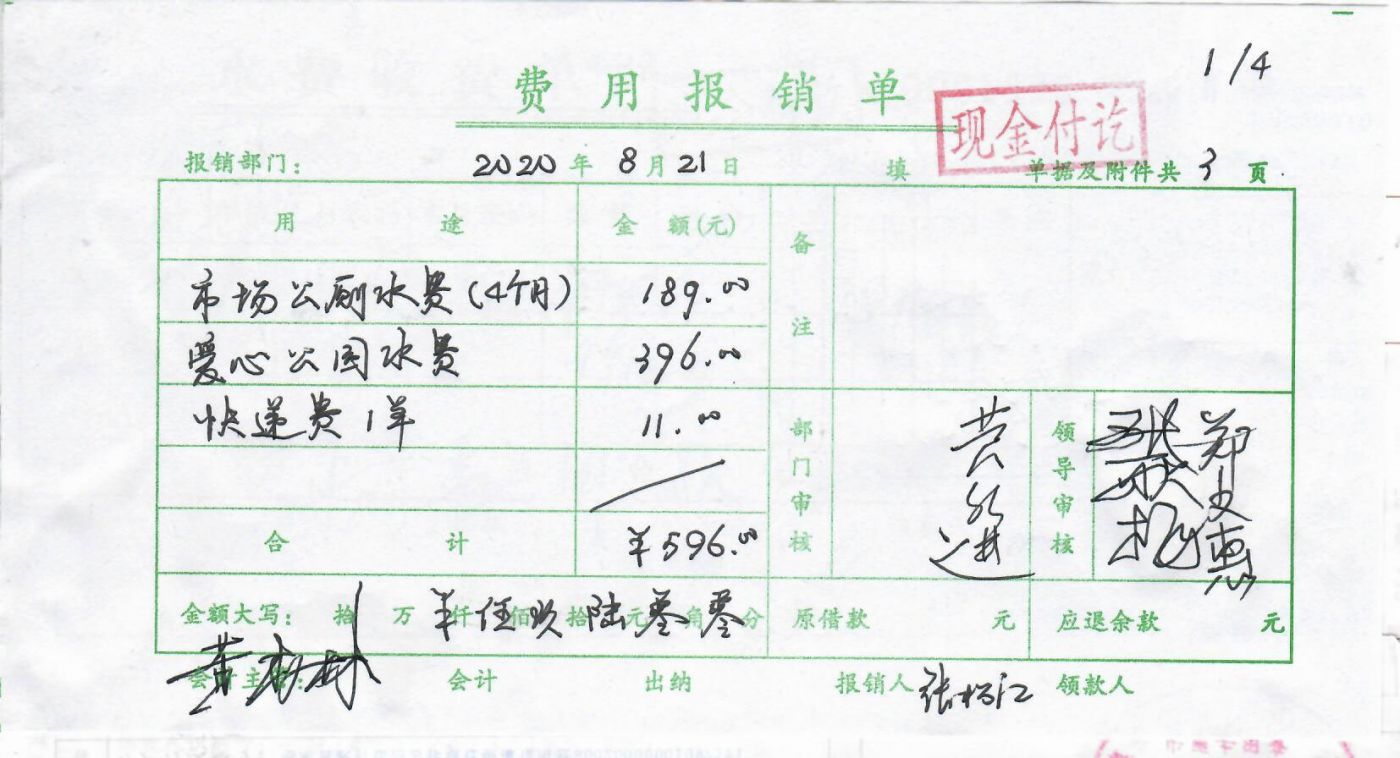 1/4
费用报销单
现金付讫
报销部门: 2020年8月21日 填 单据及附件共3页
用途 金额(元) 备注
市场公厕水费(4个月) 189.00
爱心公园水费 396.00
快递费1单 11.00
部门审核 领导审核
合计 ¥596.00
金额大写: 拾 万 仟 伍佰玖拾陆元零角零分 原借款 元 应退余款 元
会计主管: 会计 出纳 报销人 领款人